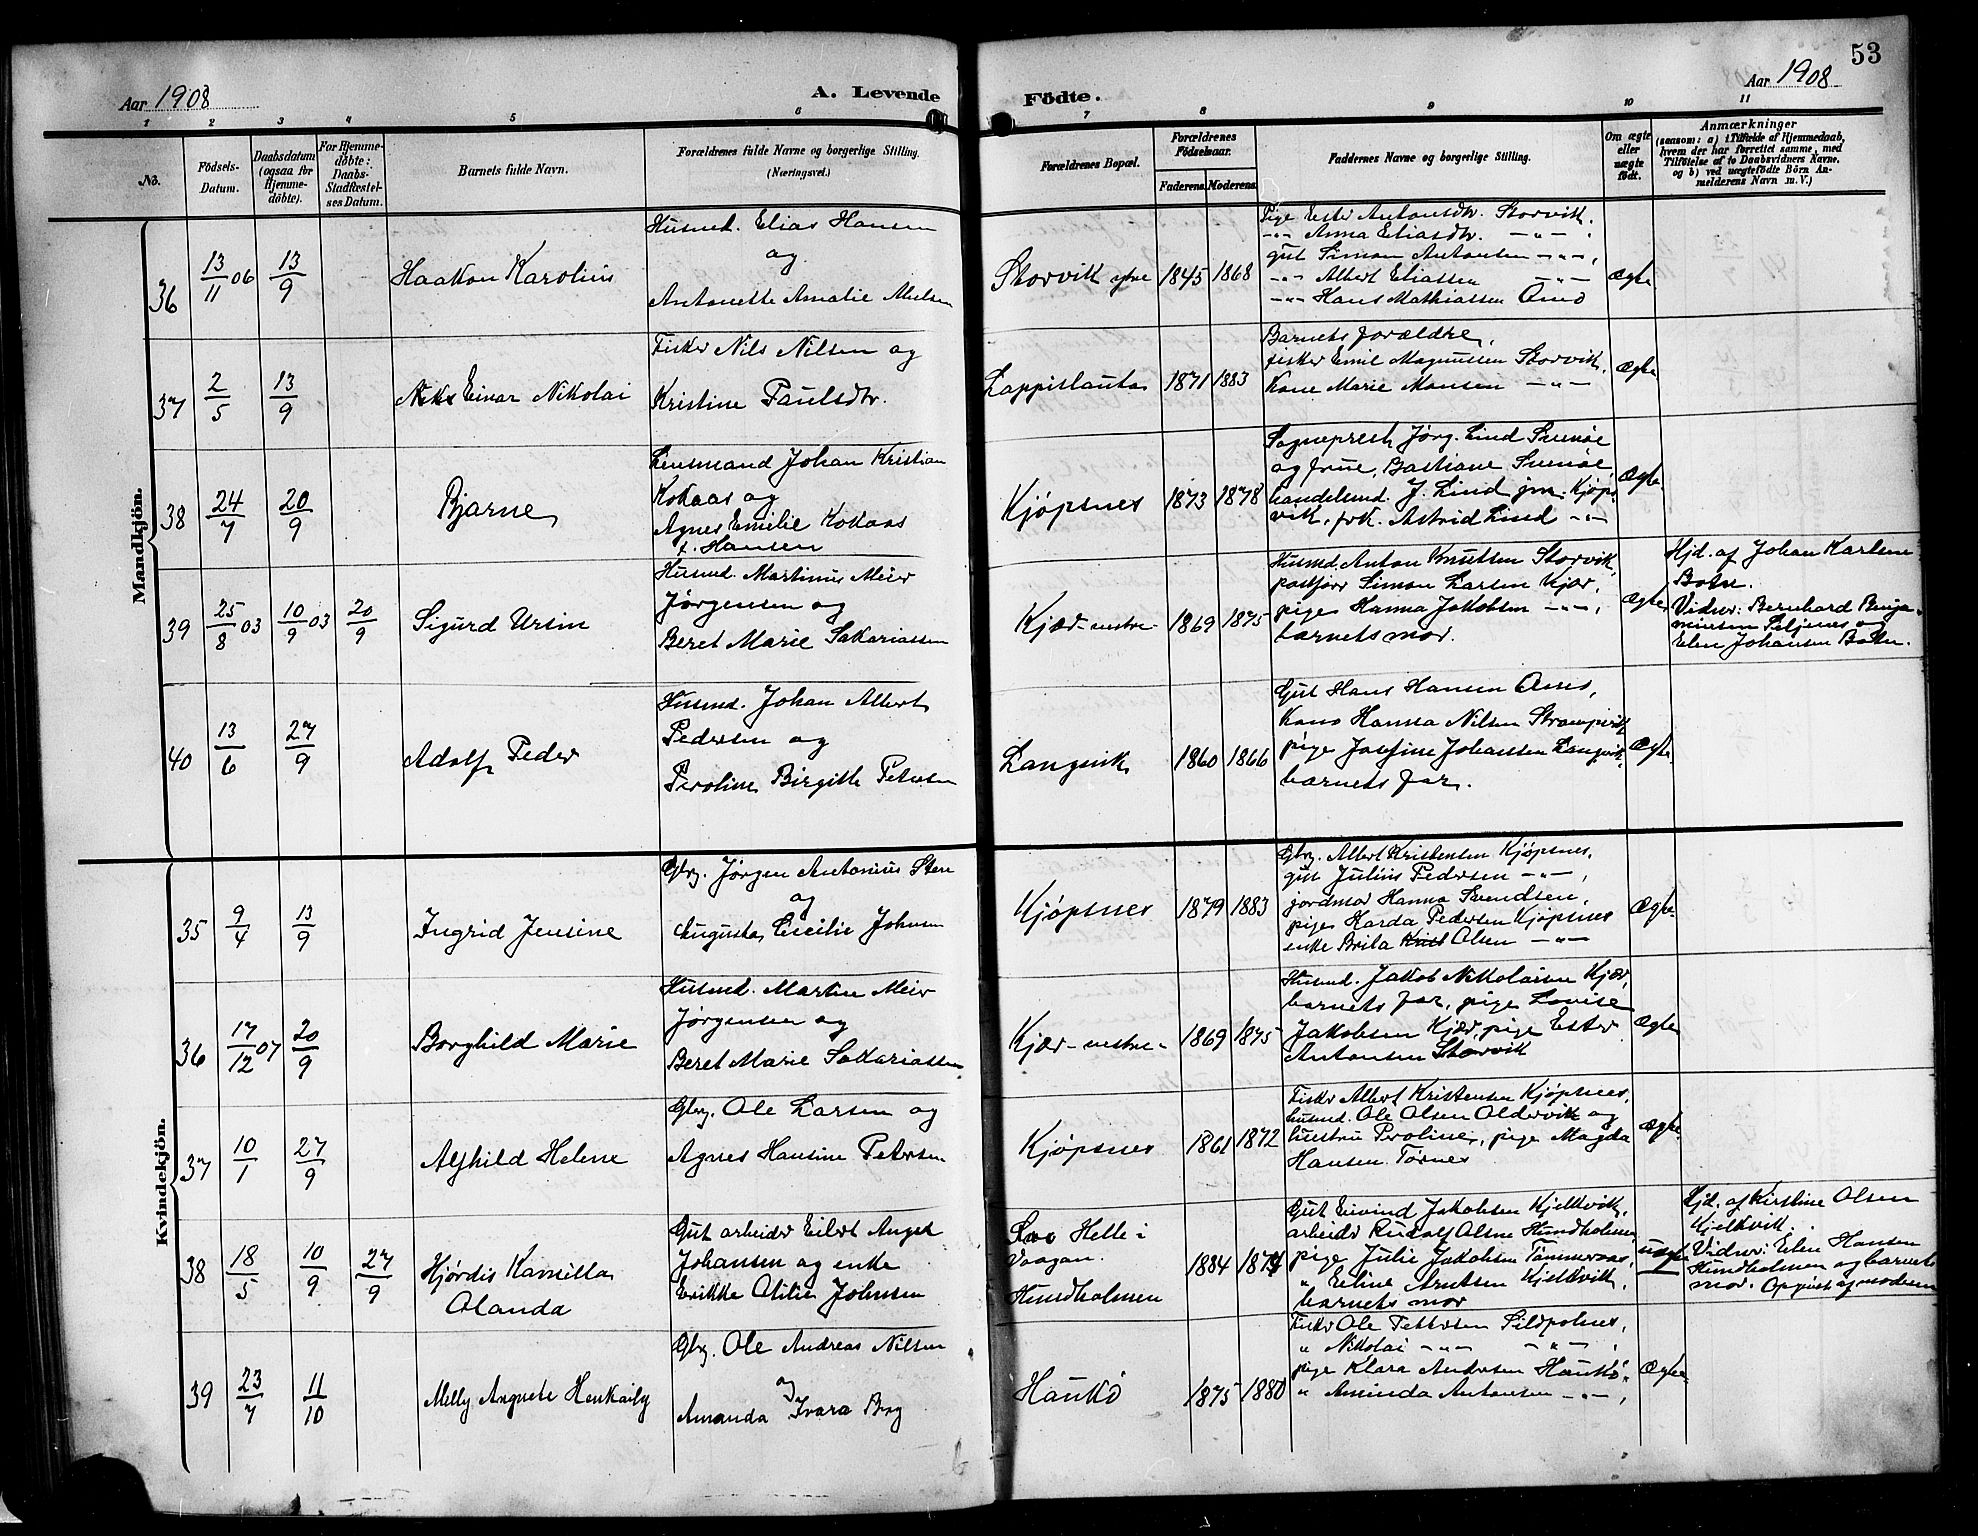 53
Aar 1908
A. Levende
Födte.
Aar 1908
1 2 3 4 5 6 7 8 9 10 11
No.
Födsels-
Datum.
Daabsdatum
(ogsaa for
Hjemme-
döbte).
For Hjemme-
döbte:
Daabs-
Stadfæstel-
ses Datum.
Barnets fulde Navn.
Forældrenes fulde Navne og borgerlige Stilling.
(Næringsvei.)
Forældrenes Bopæl.
Forældrenes
Födselsaar.
Faderens. Moderens.
Faddernes Navne og borgerlige Stilling.
Om ægte
eller
uægte
födt.
Anmærkninger
(saasom: a) i Tilfælde af Hjemmedaab,
hvem der har forrettet samme, med
Tilföielse af to Daabsvidners Navne.
og b) ved uægtefödte Börn An-
melderens Navn m. V.)
Mandkjön.
36
13/11 06
13/9
Haakon Karolius
Husmd. Elias Hansen
og
Antonette Amalie Nielsen
Storvik ytre
1845
1868
Pige Ester Antonsdtr. Storvik.
-"- Anna Eliasdtr. -"-
gut Simon Antonsen -"-,
-"- Albert Eliassen -"-
-"- Hans Mathiassen
Ægte
37
2/5
13/9
Einar Nikolai
Fisker Nils Nilsen og
Kristine Paulsdtr.
Lappislauta
1871
1883
Barnets forældre,
fisker Emil Magnussen Storvik,
Kone Marie Monsen -"-
Ægte
38
24/7
20/9
Bjarne
Lensmand Johan Kristian
Kokaas og
Agnes Emilie Kokaas
f. Hansen
Kjøpsnes
1873
1878
Sogneprest Jørg. Lind Svenøe
og frue, Bastiane Svenøe,
handelsmd. J. Lind jnr. Kjøps-
vik, frk. Astrid Lind -"-
Ægte
39
25/8 03
10/9 03
20/9
Sigurd Ursin
Husmd. Martinus Meier
Jørgensen og
Beret Marie Sakariassen
Kjær-vestre-
1869
1875
Husmd. Anton Knutsen Storvik,
postfører Simon Larsen Kjær,
pige Hanna Jakobsen -"-,
barnets mor.
Ægte
Hjd. af Johan Karlsen
Botn.
Vidner: Bernhard Benja-
minsen Seljenes og
Elen Johansen Botn.
40
13/6
27/9
Adolf Peder
Husmd. Johan Albert
Pedersen og
Peroline Birgitte Petersen
Langvik
1860
1866
Gut Hans Hansen
Kone Hanna Nilsen
pige Josefine Johanssen Langvik
barnets far.
Ægte
Kvindekjön.
35
9/4
13/9
Ingrid Jensine
Gbrg. Jørgen Antonius Steen
og
Augusta Cecilie Johnsen
Kjøpsnes
1879
1883
Gbrg. Albert Kristensen Kjøpsnes,
gut Julius Pedersen -"-,
jordmor Hanna Svendsen,
pige Harda Pedersen Kjøpsnes
enke Brita Olsen -"-
Ægte
36
17/12 07
20/9
Borghild Marie
Husmd. Martin Meier
Jørgensen og
Beret Marie Sakariassen
Kjær-vestre-
1869
1875
Husmd. Jakob Nikolaisen Kjær,
barnets far, pige Lovise
Jakobsen Kjær, pige Ester
Antonsen Storvik
Ægte
37
10/1
27/9
Alfhild Helene
Gbrg. Ole Larsen og
Agnes Hansine Petersen
Kjøpsnes
1861
1872
Fisker Albert Kristensen Kjøpsnes,
husmd. Ole Olsen Oldervik og
hustru Peroline, pige Magda
Hansen Tørnes
Ægte
38
18/5
10/9
27/9
Hjørdis Kamilla
Olanda
Gut arbeider Eilert Angel
Johansen og enke
Erikke Otilie Johnsen
Helle i
Vaagan.
Hundholmen
1884
1874
Gut Eivind Jakobsen Kjelkvik,
arbeider Rudolf Olsen Hundholmen
pige Julie Jakobsen Tømmeraas,
" Eline Arntsen Kjelkvik,
barnets mor
uægte
Hjd. af Kirstine Olsen
Kjelkvik.
Vidner: Elen Hansen
Hundholmen og barnets
mor. Opgivet af moderen
39
23/7
11/10
Milly Angnete Haukaily
Gbrg. Ole Andreas Nilsen
og
Amanda Ivara Berg
Haukø
1875
1880
Fisker Ole Pettersen Sildpolnes,
" Nikolai -"- -"-,
pige Klara Andersen Haukø,
" Aminda Antonsen -"-,
Ægte